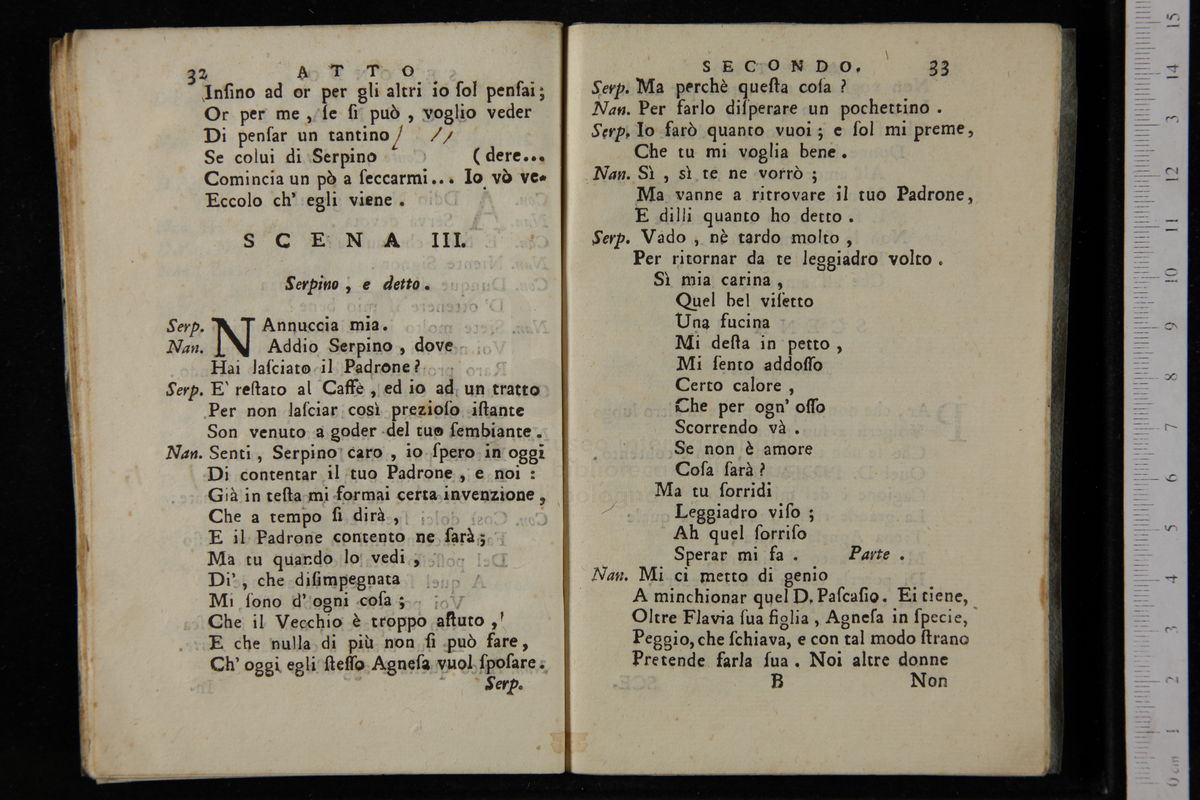 32 ATTO
Inſino ad or per gli altri io ſol penſai;
Or per me, ſe ſi può, voglio veder
Di penſar un tantino
Se colui di Serpino (dere...
Comincia un pò a ſeccarmi... Io vò ve-
Eccolo ch' egli viene.
SCENA III.
Serpino, e detto.
Serp. NAnnuccia mia.
Nan. Addio Serpino, dove
Hai laſciato il Padrone?
Serp. E' reſtato al Caffè, ed io ad un tratto
Per non laſciar così prezioſo iſtante
Son venuto a goder del tuo ſembiante.
Nan. Senti, Serpino caro, io ſpero in oggi
Di contentar il tuo Padrone, e noi:
Già in teſta mi formai certa invenzione,
Che a tempo ſi dirà,
E il Padrone contento ne ſarà;
Ma tu quando lo vedi,
Di', che diſimpegnata
Mi ſono d' ogni coſa;
Che il Vecchio è troppo aſtuto,
E che nulla di più non ſi può fare,
Ch' oggi egli ſteſſo Agneſa vuol ſpoſare.
Serp.
SECONDO. 33
Serp. Ma perchè queſta coſa?
Nan. Per farlo diſperare un pochettino.
Serp. Io farò quanto vuoi; e ſol mi preme,
Che tu mi voglia bene.
Nan. Sì, sì te ne vorrò;
Ma vanne a ritrovare il tuo Padrone,
E dilli quanto ho detto.
Serp. Vado, nè tardo molto,
Per ritornar da te leggiadro volto.
Sì mia carina,
Quel bel viſetto
Una fucina
Mi deſta in petto,
Mi ſento addoſſo
Certo calore,
Che per ogn' oſſo
Scorrendo và.
Se non è amore
Coſa ſarà?
Ma tu ſorridi
Leggiadro viſo;
Ah quel ſorriſo
Sperar mi fa. Parte.
Nan. Mi ci metto di genio
A minchionar quel D. Paſcaſio. Ei tiene,
Oltre Flavia ſua figlia, Agneſa in ſpecie,
Peggio, che ſchiava, e con tal modo ſtrano
Pretende farla ſua. Noi altre donne
B Non
0 cm 1 2 3 4 5 6 7 8 9 10 11 12 13 14 15